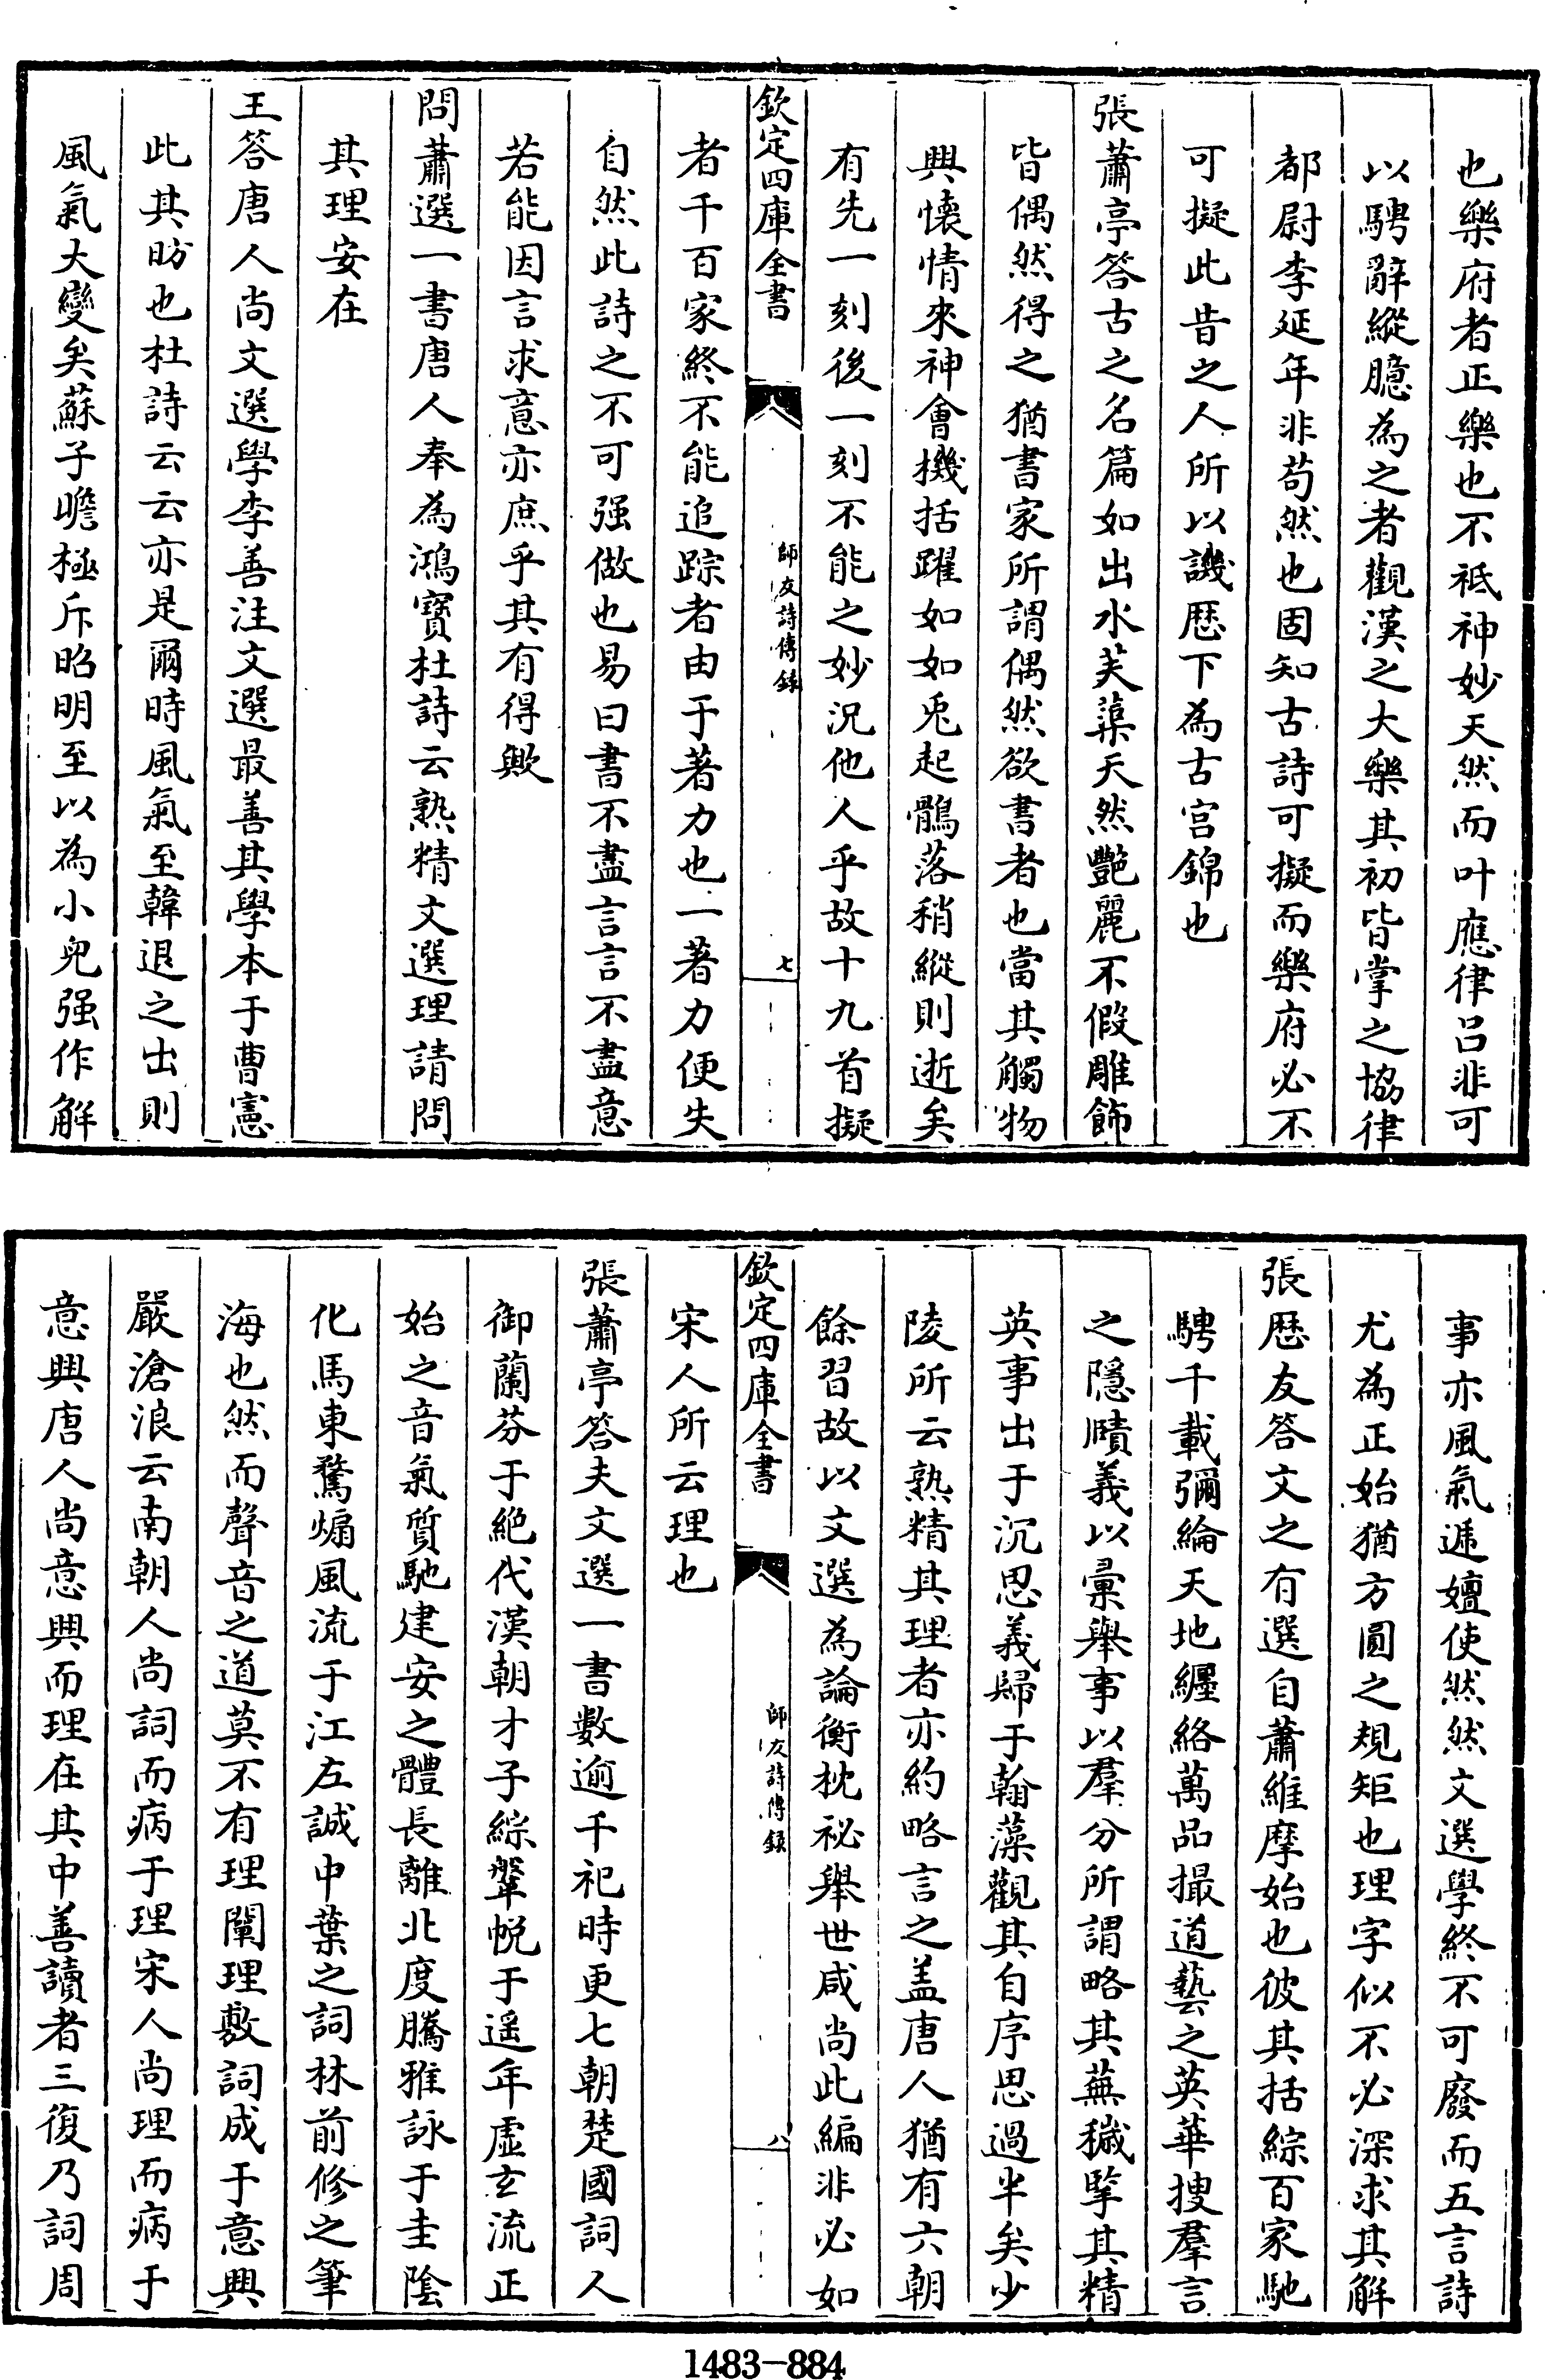 也樂府者正樂也不祗神妙天然而叶應律呂非可
以騁辭縱臆為之者觀漢之大樂其初皆掌之協律
都尉李延年非苟然也固知古詩可擬而樂府必不
可擬此昔之人所以譏歴下為古宫錦也
張蕭亭答古之名篇如出水芙蕖天然艷麗不假雕飾
皆偶然得之猶書家所謂偶然欲書者也當其觸物
興懷情來神會機括躍如如兎起鶻落稍縱則逝矣
有先一刻後一刻不能之妙況他人乎故十九首擬
欽定四庫全書
師友詩傳録
七
者千百家終不能追踪者由于著力也一著力便失
自然此詩之不可强做也易曰書不盡言言不盡意
若能因言求意亦庶乎其有得歟
問蕭選一書唐人奉為鴻寳杜詩云熟精文選理請問
其理安在
王答唐人尚文選學李善注文選最善其學本于曹憲
此其昉也杜詩云云亦是爾時風氣至韓退之出則
風氣大變矣蘇子瞻極斥昭明至以為小兒强作解
事亦風氣遞嬗使然然文選學終不可廢而五言詩
尤為正始猶方圓之規矩也理字似不必深求其解
張歴友答文之有選自蕭維摩始也彼其括綜百家馳
騁千載彌綸天地纒絡萬品撮道藝之英華搜羣言
之隱賾義以彚舉事以羣分所謂略其蕪穢擥其精
英事出于沉思義歸于翰藻觀其自序思過半矣少
陵所云熟精其理者亦約略言之盖唐人猶有六朝
餘習故以文選為論衡枕祕舉世咸尚此編非必如
欽定四庫全書
師友詩傳録
八
宋人所云理也
張蕭亭答夫文選一書數逾千祀時更七朝楚國詞人
御蘭芬于絶代漢朝才子綜鞶帨于遥年虚玄流正
始之音氣質馳建安之體長離北度騰雅詠于圭陰
化馬東騖煽風流于江左誠中葉之詞林前修之筆
海也然而聲音之道莫不有理闡理敷詞成于意興
嚴滄浪云南朝人尚詞而病于理宋人尚理而病于
意興唐人尚意興而理在其中善讀者三復乃詞周
1483-884